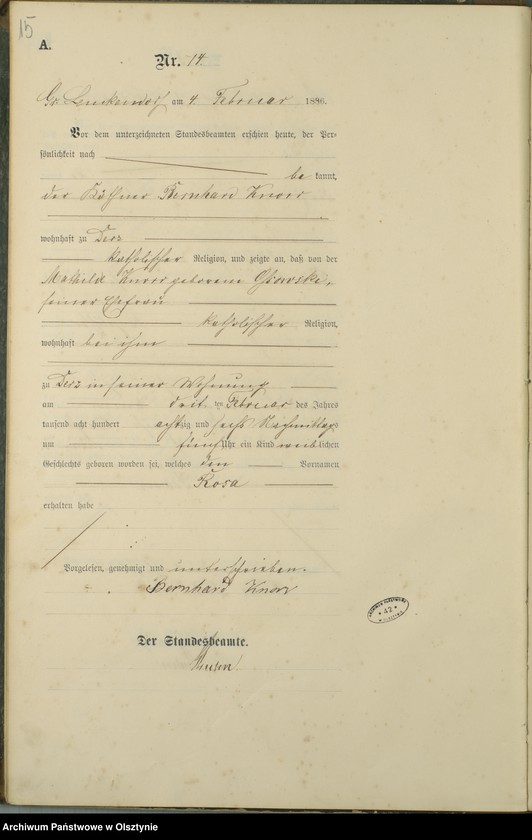 15
A.
Nr. 14.
am 4. Februar 1886.
Vor dem unterzeichneten Standesbeamten erschien heute, der Per-
sönlichkeit nach
be kannt,
der Bernhard Knorr
wohnhaft zu Derz
katholischer Religion, und zeigte an, daß von der
Mathilde Knorr geborenen
seiner Ehefrau
katholischer Religion,
wohnhaft bei ihm
zu Derz in seiner Wohnung
am drit ten Februar des Jahres
tausend acht hundert achtzig und sechs Nachmittags
um fünf Uhr ein Kind weiblichen
Geschlechts geboren worden sei, welches den Vornamen
Rosa
erhalten habe
Vorgelesen, genehmigt und unterschrieben.
Bernhard Knorr
Der Standesbeamte.
42
Archiwum Państwowe w Olsztynie